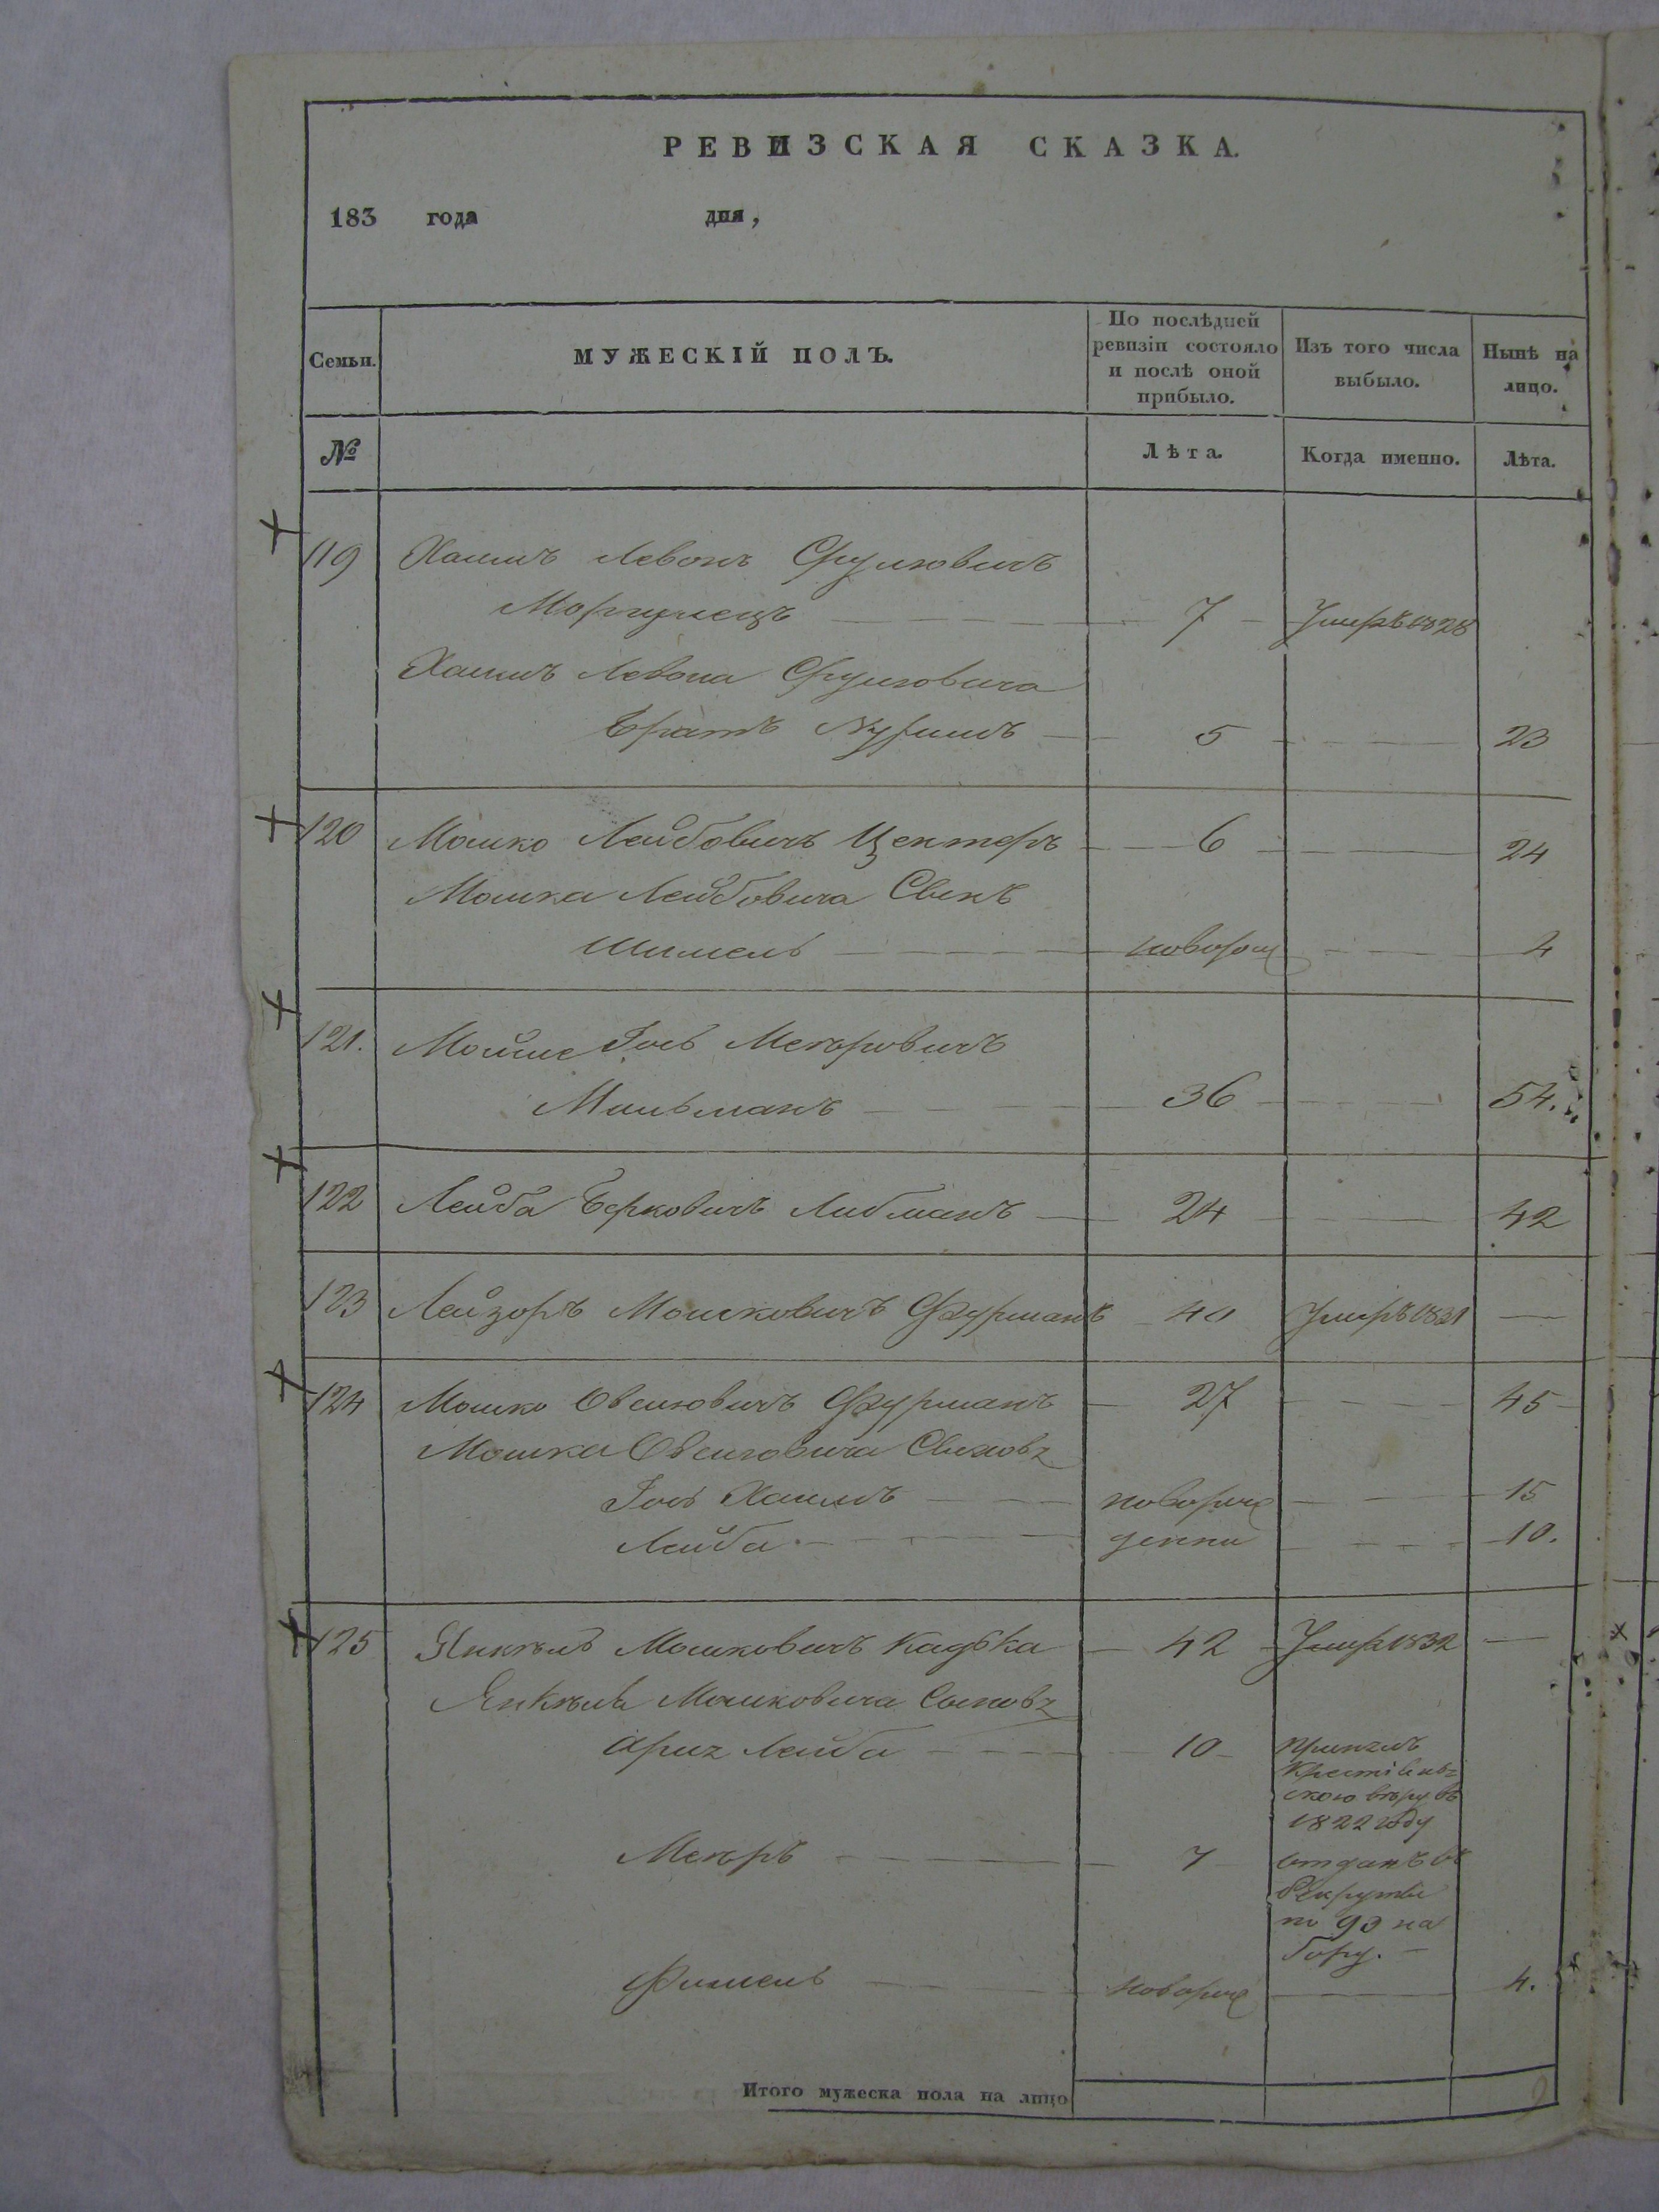 РЕВИЗСКАЯ СКАЗКА.
183 года дня,
Семьи. МУЖЕСКІЙ ПОЛЪ. По послѣдней ревизіи состояло и послѣ оной прибыло. Изъ того числа выбыло. Нынѣ на лицо.
№ Лѣта. Когда именно. Лѣта.
119 Хаимъ Левонъ
7 Умеръ 1828
Хаимъ Левона
братъ 5 23
120 Мошко Лейбовичъ Центеръ 6 24
Мошка Лейбовича Сынъ
Шимель новорож 4
121. Мойше Іось Мееровичъ
Мильманъ 36 54.
122 Лейба Берковичъ Либманъ 24 42
123 Лейзоръ Мошковичъ Фурманъ 40 Умеръ 1831
124 Мошко Овсеювичъ Фурманъ 27 45
Мошка Овсеювича Сыновья
Іось Хаимъ новорож 15
Лейба денни 10.
125 Янкель Мошковичъ Кадька 42 Умеръ 1832
Янкеля Мошковича Сыновья
Арія Лейба 10 принялъ
Крестіянъ=
скою вѣру въ
1822 году
Мееръ 7 отданъ въ
Рекруты
по 93 на
бору.
Фишель новорож 4.
Итого мужеска пола на лицо 9